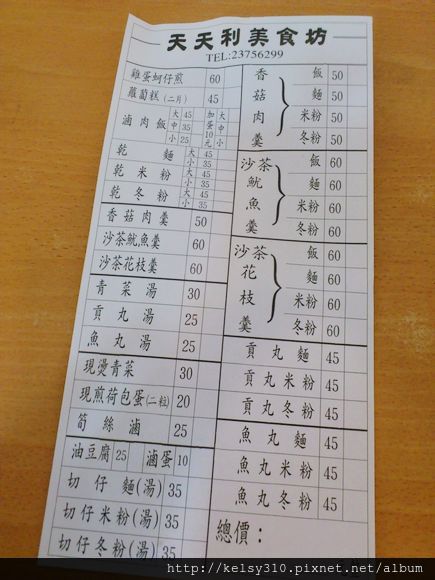 天天利美食坊
TEL:23756299
雞蛋蚵仔煎 60
蘿蔔糕(二月) 45
滷肉飯 大 45 中 35 小 25 加蛋10元 大 中 小
乾麵 大 45 小 35
乾米粉 大 45 小 35
乾冬粉 大 45 小 35
香菇肉羹 50
沙茶魷魚羹 60
沙茶花枝羹 60
青菜湯 30
貢丸湯 25
魚丸湯 25
現燙青菜 30
現煎荷包蛋(二粒) 20
筍絲滷 25
油豆腐 25 滷蛋 10
切仔麵(湯) 35
切仔米粉(湯) 35
切仔冬粉(湯) 35
香菇肉羹
飯 50
麵 50
米粉 50
冬粉 50
沙茶魷魚羹
飯 60
麵 60
米粉 60
冬粉 60
沙茶花枝羹
飯 60
麵 60
米粉 60
冬粉 60
貢丸麵 45
貢丸米粉 45
貢丸冬粉 45
魚丸麵 45
魚丸米粉 45
魚丸冬粉 45
總價：
http://kelsy310.pixnet.net/album